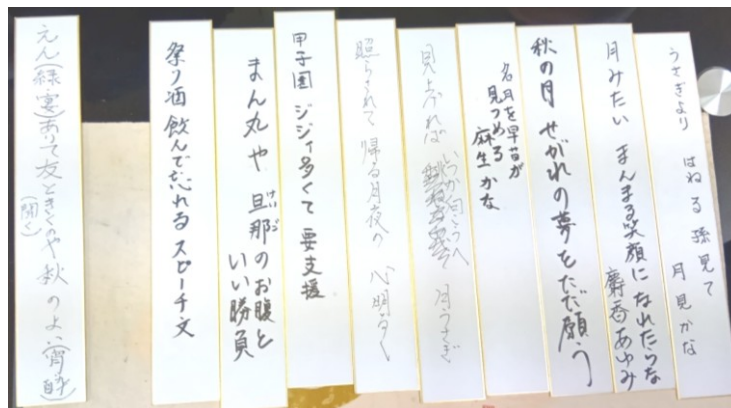 うさぎより はねる孫見て
月見かな
月みたい まんまる笑顔に なれたらな
麝香あゆみ
秋の月 せがれの夢を ただ願う
名月を早苗が
見つめる
麻生かな
見上げれば
いつか向こうへ
月うさぎ
照らされて 帰る月夜の 心明るく
甲子園 ジジイ多くて 要支援
まん丸や 旦那のお腹と
けいジ
いい勝負
祭り酒 飲んで忘れる スピーチ文
えん(縁・宴)ありて 友ときくのや 秋のよい(宵・酔)
(聞く)